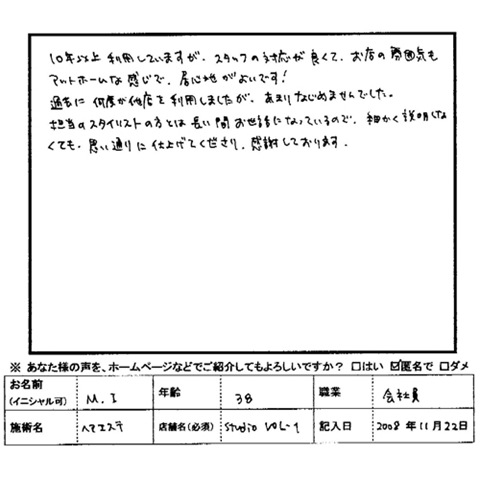 10年以上利用していますが、スタッフの対応が良くて、お店の雰囲気も
アットホームな感じで、居心地がよいです!
過去に何度か他店を利用しましたが、あまりなじめませんでした。
担当のスタイリストの方とは長い間お世話になっているので、細かく説明しな
くても、思い通りに仕上げてくださり、感謝しております。
※ あなた様の声を、ホームページなどでご紹介してもよろしいですか? □はい ☑匿名で □ダメ
お名前(イニシャル可) M.I 年齢 38 職業 会社員
施術名 ヘアエステ 店舗名(必須) Studio VOL-1 記入日 2008年11月22日